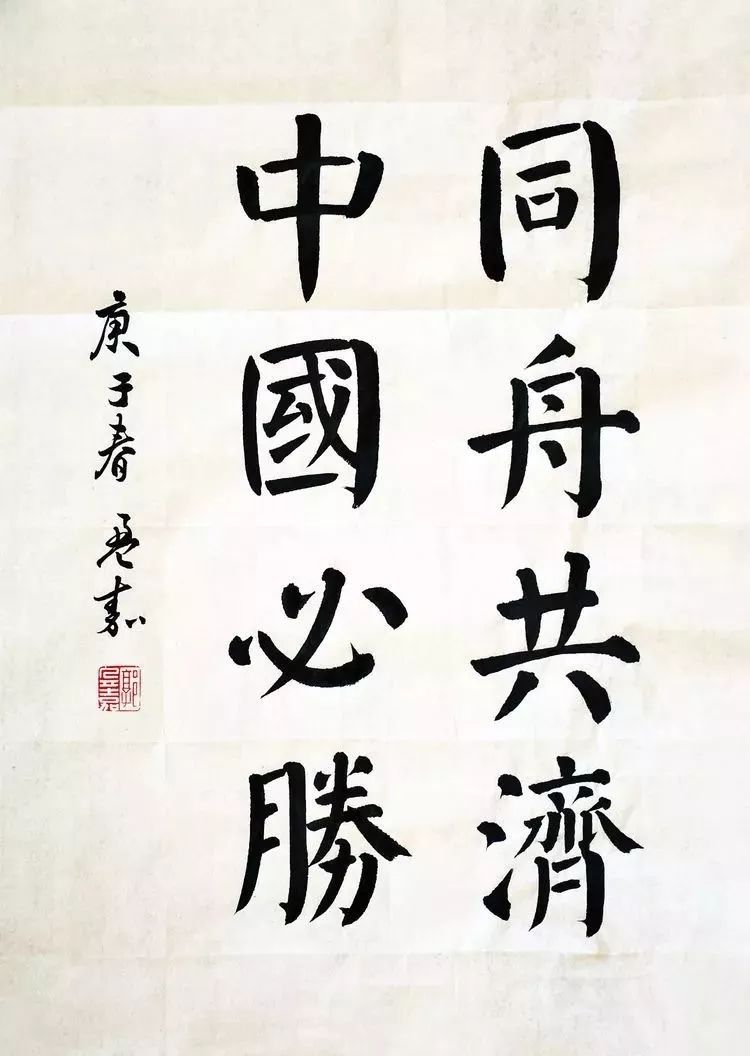 同舟共濟
中國必勝
庚子春 嘉